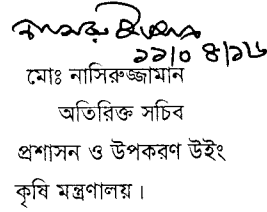 ১১/০৪/১৬
মোঃ নাসিরুজ্জামান
অতিরিক্ত সচিব
প্রশাসন ও উপকরণ উইং
কৃষি মন্ত্রণালয়।